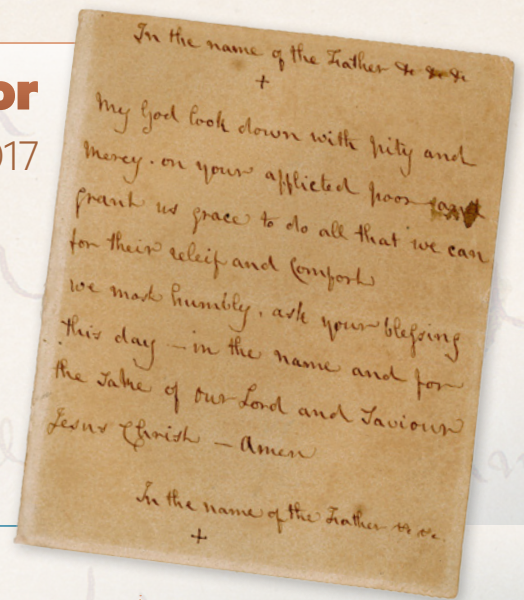 or
017
In the name of the Father &c &c &c
+
My God look down with pity and
Mercy. on your applicted poor and
grant us grace to do all that we can
for their releif and Comfort
we most humbly, ask your blessing
this day — in the name and for
the sake of our Lord and Saviour
Jesus Christ — Amen
In the name of the Father &c &c.
+